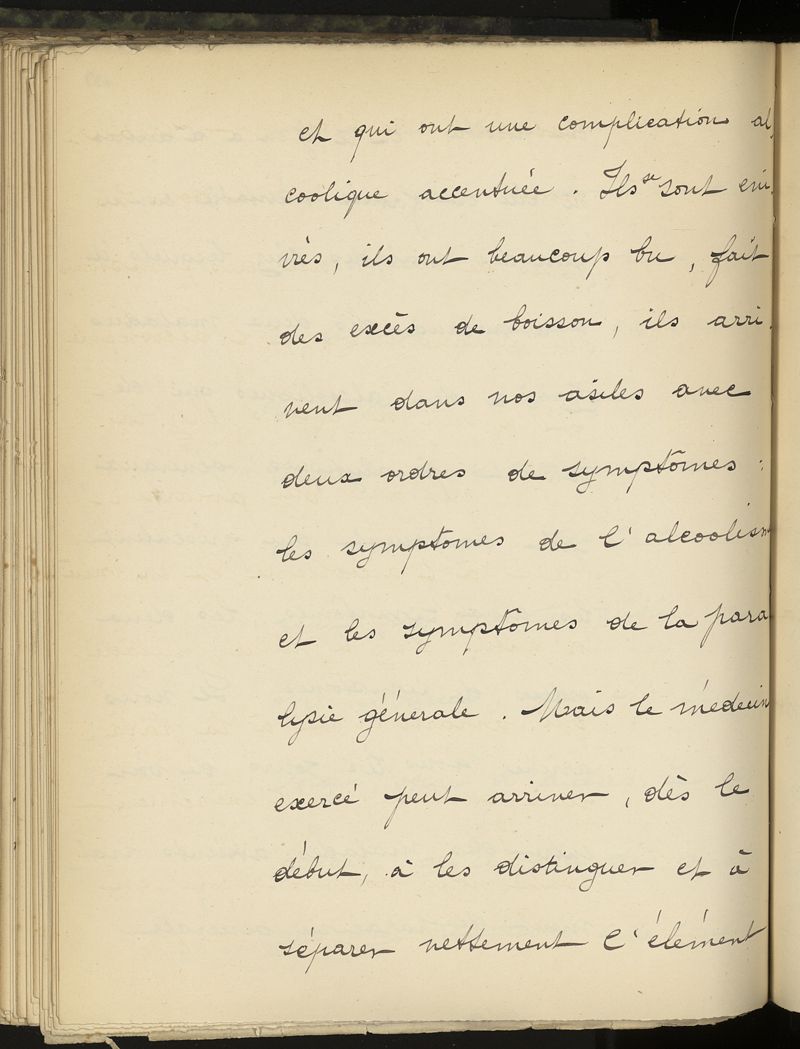 et qui ont une complication al
coolique accentuée. Ils se sont eni
vrés, ils ont beaucoup bu, fait
des excès de boisson, ils arri
vent dans nos asiles avec
deux ordres de symptômes :
les symptomes de l'alcoolism
et les symptômes de la para
lysie générale. Mais le médecin
exercé peut arriver, dès le
début, à les distinguer et à
séparer nettement l'élément